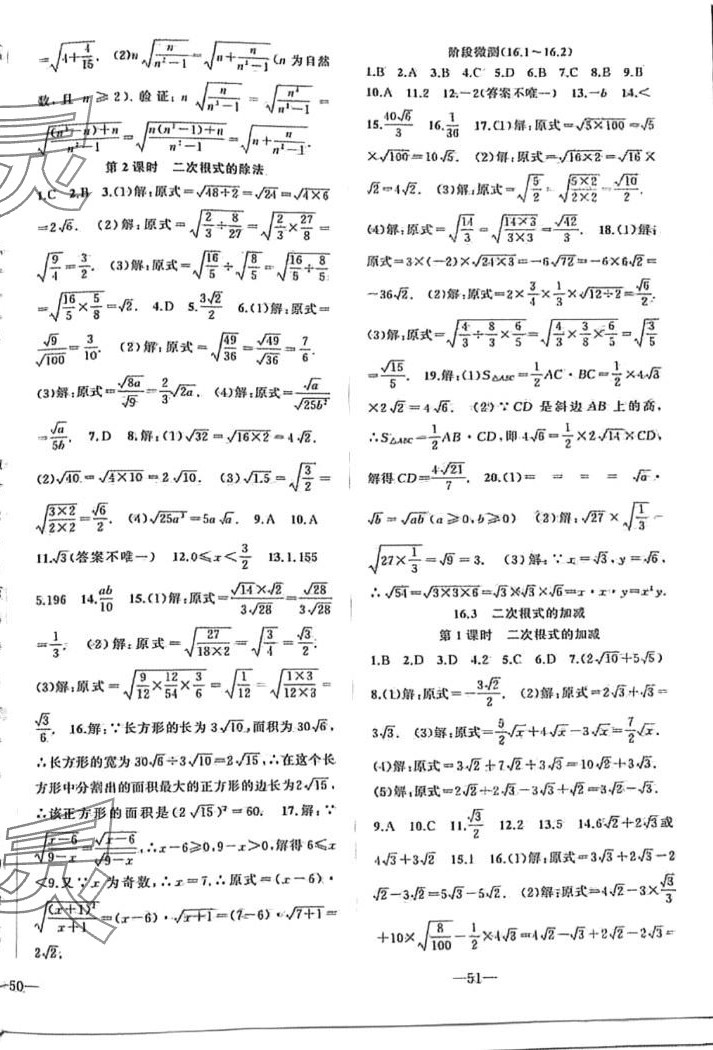 =√(4+4/15). (2)n√(n/(n²-1))=√(n+n/(n²-1))(n 为自然
数,且 n≥2). 验证:n√(n/(n²-1))=√(n³/(n²-1))=
√(((n³-n)+n)/(n²-1))=√((n(n²-1)+n)/(n²-1))=√(n+n/(n²-1)).
第 2 课时 二次根式的除法
1.C 2.B 3.(1)解:原式=√(48÷2)=√24=√(4×6)
=2√6. (2)解:原式=√(2/3÷8/27)=√(2/3×27/8)=
√(9/4)=3/2. (3)解:原式=√(16/5)÷√(8/5)=√(16/5÷8/5)
=√(16/5×5/8)=√2. 4.D 5.3√2/2 6.(1)解:原式=
√9/√100=3/10. (2)解:原式=√(49/36)=√49/√36=7/6.
(3)解:原式=√(8a)/√9=2/3√(2a). (4)解:原式=√a/√(25b²)
=√a/5b. 7.D 8.解:(1)√32=√(16×2)=4√2.
(2)√40=√(4×10)=2√10. (3)√1.5=√(3/2)=
√((3×2)/(2×2))=√6/2. (4)√(25a³)=5a√a. 9.A 10.A
11.√3(答案不唯一) 12.0≤x<3/2 13.1.155
5.196 14.ab/10 15.(1)解:原式=(√14×√2)/(3√28)=√28/(3√28)
=1/3. (2)解:原式=√(27/(18×2))=√(3/4)=√3/2.
(3)解:原式=√(9/12×12/54×3/6)=√(1/12)=√((1×3)/(12×3))=
√3/6. 16.解:∵长方形的长为 3√10,面积为 30√6,
∴长方形的宽为 30√6÷3√10=2√15,∴在这个长
方形中分割出的面积最大的正方形的边长为2√15,
∴该正方形的面积是(2√15)²=60. 17.解:∵
√((x-6)/(9-x))=√(x-6)/√(9-x),∴x-6≥0,9-x>0,解得 6≤x
<9.又∵x 为奇数,∴x=7,∴原式=(x-6)·
√((x+1)²/(x+1))=(x-6)·√(x+1)=(7-6)·√(7+1)=
2√2.
—50—
阶段微测(16.1～16.2)
1.B 2.A 3.B 4.C 5.D 6.B 7.C 8.B 9.B
10.A 11.2 12.-2(答案不唯一) 13.-b 14.<
15.40√6/3 16.1/36 17.(1)解:原式=√(5×100)=√5
×√100=10√5. (2)解:原式=√(16×2)=√16×
√2=4√2. (3)解:原式=√(5/2)=√((5×2)/(2×2))=√10/2.
(4)解:原式=√(14/3)=√((14×3)/(3×3))=√42/3. 18.(1)解:
原式=3×(-2)×√(24×3)=-6√72=-6×6√2=
-36√2. (2)解:原式=2×3/4×1/3×√(12÷2)=√6/2.
(3)解:原式=√(4/3÷8/3×6/5)=√(4/3×3/8×6/5)=√(3/5)
=√15/5. 19.解:(1)S△ABC=1/2AC·BC=1/2×4√3
×2√2=4√6. (2)∵CD 是斜边 AB 上的高,
∴S△ABC=1/2AB·CD,即 4√6=1/2×2√14×CD,
解得CD=4√21/7. 20.(1)= = = = √a·
√b=√(ab)(a≥0,b≥0) (2)解:√27×√(1/3)=
√(27×1/3)=√9=3. (3)解:∵x=√3,y=√6,
∴√54=√(3×3×6)=√3×√3×√6=x·x·y=x²y
16.3 二次根式的加减
第 1 课时 二次根式的加减
1.B 2.D 3.D 4.2 5.C 6.D 7.(2√10+5√5)
8.(1)解:原式=-3√2/2. (2)解:原式=2√3+√3=
3√3. (3)解:原式=5/2√x+4√x-3√x=7/2√x.
(4)解:原式=3√2+7√2+3√3=10√2+3√3.
(5)解:原式=2√2+2√3-3√3+√2=3√2-√3.
9.A 10.C 11.√3/2 12.2 13.5 14.6√2+2√3或
4√3+3√2 15.1 16.(1)解:原式=3√2+3√3-2
√2-3√2=5√3-5√2. (2)解:原式=4√2-3×√3/3
+10×√(8/100)-1/2×4√3=4√2-√3+2√2-2√3
—51—